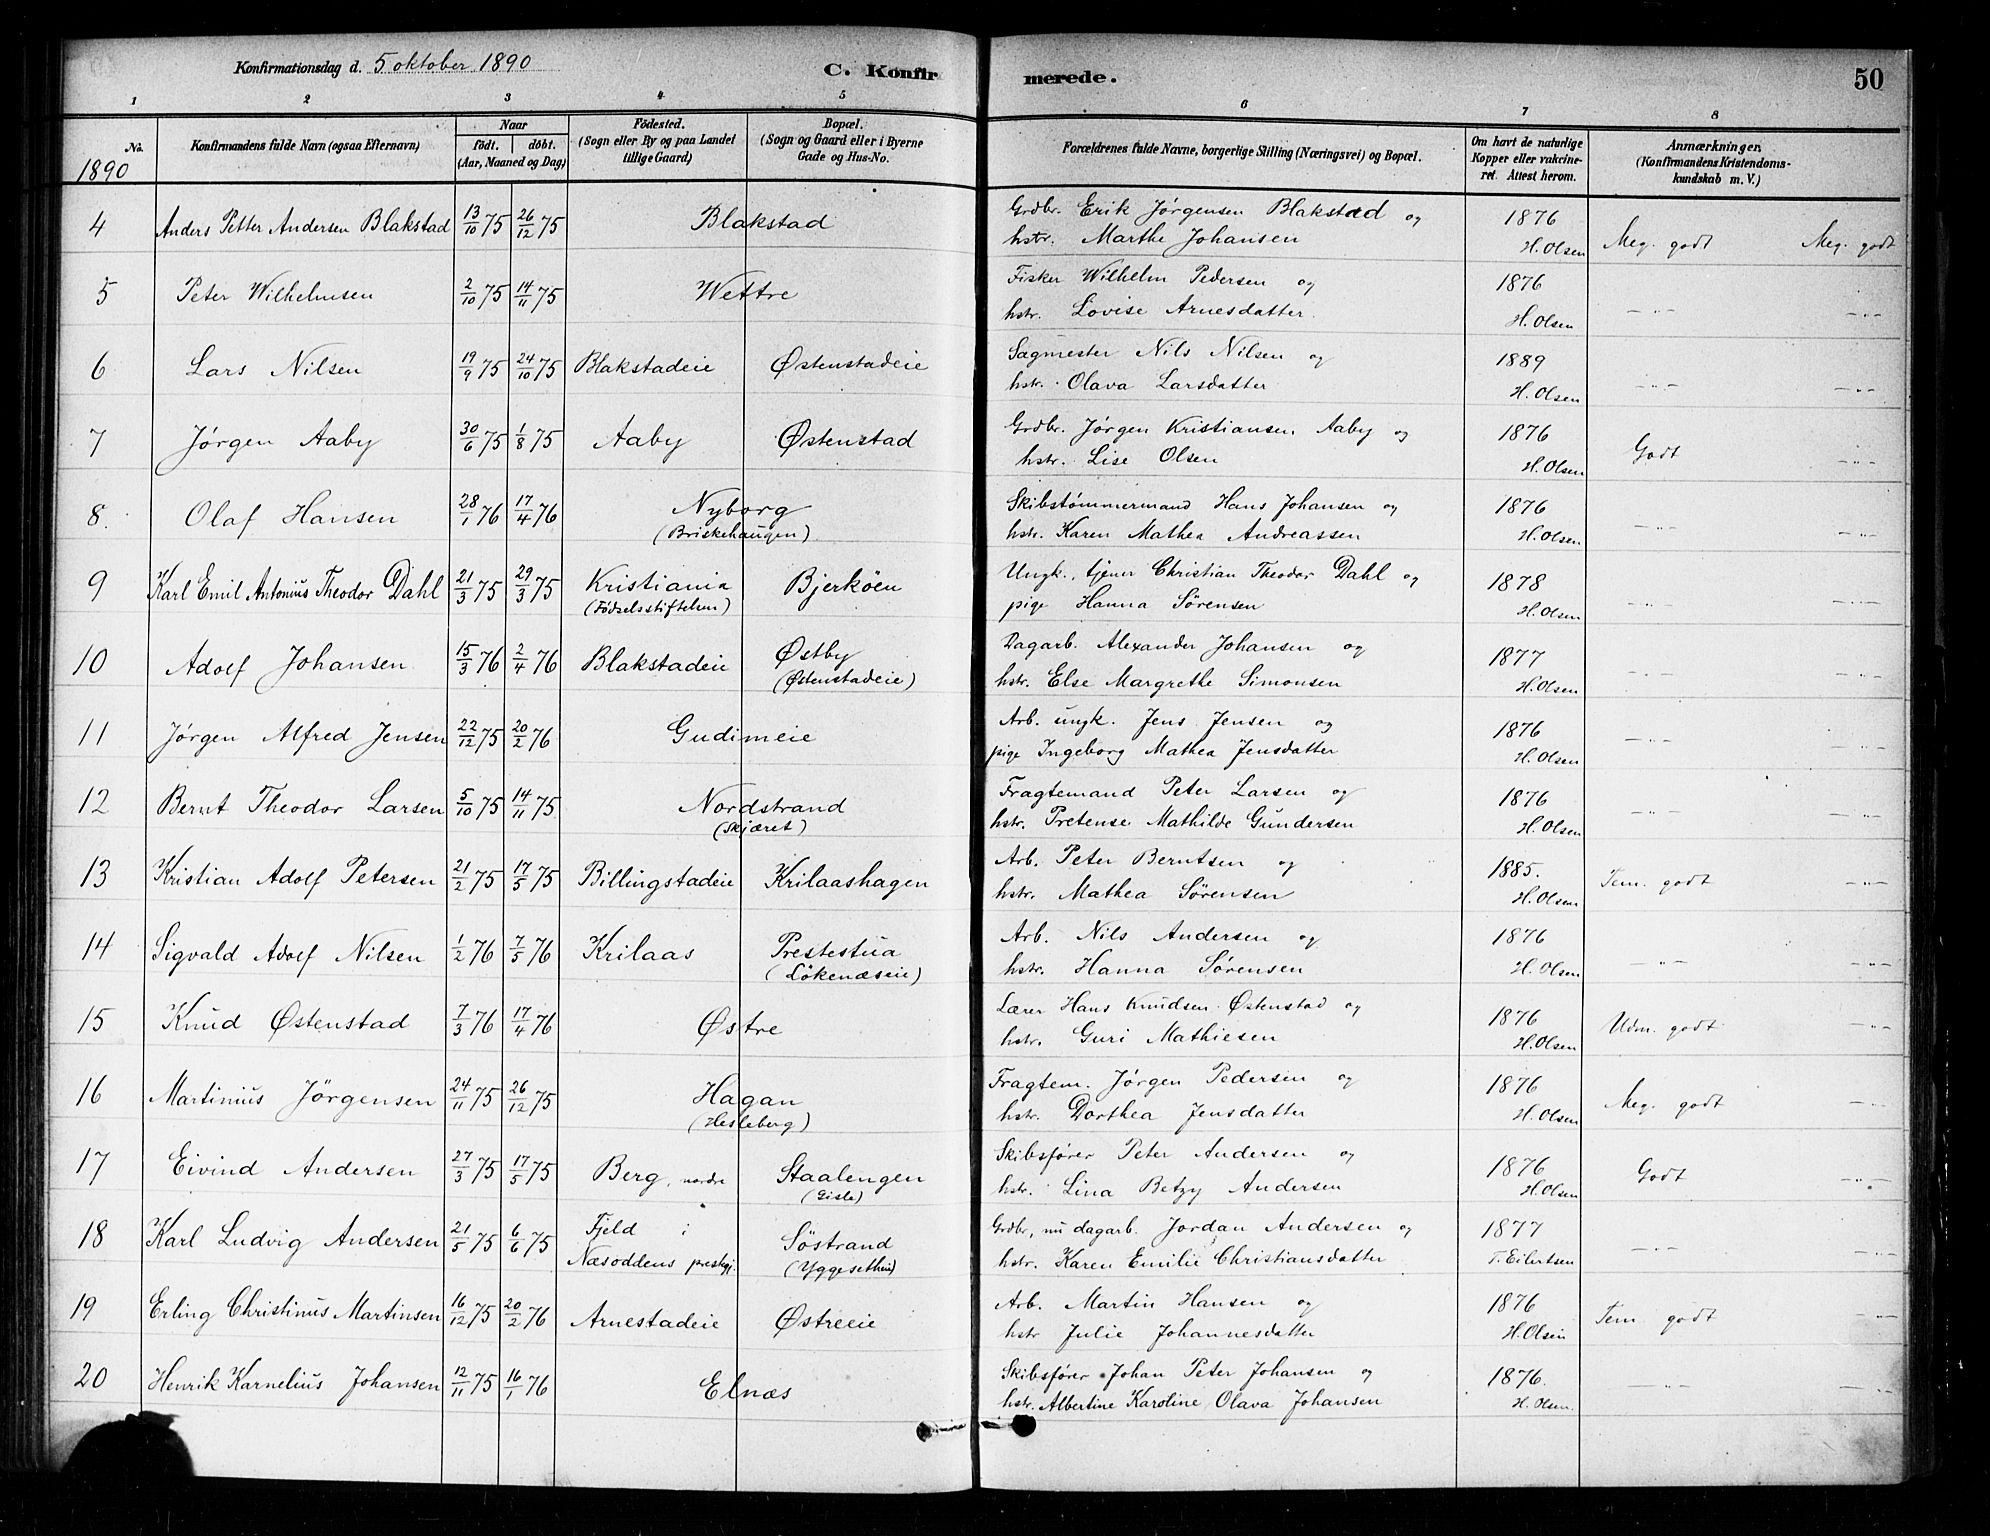 Konfirmationsdag d. 5 oktober 1890
C. Konfirmerede.
50
1 2 3 4 5 6 7 8
No. Konfirmandens fulde Navn (ogsaa Efternavn) Naar født. døbt. (Aar, Maaned og Dag) Fødested. (Sogn eller By og paa Landet tillige Gaard) Bopæl. (Sogn og Gaard eller i Byerne Gade og Hus-No. Forældrenes fulde Navne, borgerlige Stilling (Næringsvei) og Bopæl. Om havt de naturlige Kopper eller vakcineret. Attest herom. Anmærkninger. (Konfirmandens Kristendomskundskab m. V.)
1890
4 Anders Petter Andersen Blakstad 13/10 75 26/12 75 Blakstad Grdbr. Erik Jörgensen Blakstad og 1876
hstr. Marthe Johansen H. Olsen Meg. godt Meg. godt
5 Peter Wilhelmsen 2/10 75 14/11 75 Wettre Fisker Wilhelm Pedersen og 1876
hstr. Lovise Arnesdatter. H. Olsen — „ — — „ —
6 Lars Nilsen 19/9 75 24/10 75 Blakstadeie Østenstadeie Sagmester Nils Nilsen og 1889
hstr. Olava Larsdatter H. Olsen — „ — — „ —
7 Jørgen Aaby 30/6 75 1/8 75 Aaby Østenstad Grdbr. Jørgen Kristiansen Aaby og 1876
hstr. Lise Olsen H. Olsen Godt — „ —
8. Olaf Hansen 28/1 76 17/4 76 Nyborg Skibstømmermand Hans Johansen og 1876
(Briskehaugen) hstr. Karen Mathea Andreassen H. Olsen — „ — — „ —
9 Karl Emil Antonius Theodor Dahl 21/3 75 29/3 75 Kristiania Bjerköen Ungk., tjener Christian Theodor Dahl og 1878
(Födselsstiftelsen) pige Hanna Sörensen H. Olsen — „ — — „ —
10 Adolf Johansen 15/3 76 2/4 76 Blakstadeie Østby Dagarb. Alexander Johansen og 1877
(Østenstadeie) hstr. Else Margrethe Simonsen H. Olsen — „ — — „ —
11 Jørgen Alfred Jensen 22/12 75 20/2 76 Gudimeie Arb. ungk. Jens Jensen og 1876
pige Ingeborg Mathea Jensdatter H. Olsen — „ — — „ —
12 Bernt Theodor Larsen 5/10 75 14/11 75 Nordstrand Fragtemand Peter Larsen og 1876
(Skjæret) hstr. Pretense Mathilde Gundersen H. Olsen — „ — — „ —
13 Kristian Adolf Petersen 21/2 75 17/5 75 Billingstadeie Krilaashagen Arb. Peter Berntsen og 1885.
hstr. Mathea Sørensen H. Olsen Tem. godt — „ —
14 Sigvald Adolf Nilsen 1/2 76 7/5 76 Krilaas Prestestua Arb. Nils Andersen og 1876
(Lökenæseie) hstr. Hanna Sørensen H. Olsen — „ — — „ —
15 Knud Østenstad 7/3 76 17/4 76 Østre Lærer Hans Knudsen Østenstad og 1876
hstr. Guri Mathiesen H. Olsen Udm. godt — „ —
16 Martinius Jörgensen 24/11 75 26/12 75 Hagan Fragtem. Jørgen Pedersen og 1876
(Hesleberg) hstr. Dorthea Jensdatter H. Olsen Meg. godt — „ —
17 Eivind Andersen 27/3 75 17/5 75 Berg, nordre Staalengen Skibsfører Peter Andersen og 1876
(Gisle) hstr. Lina Betzy Andersen H. Olsen Godt — „ —
18 Karl Ludvig Andersen 21/5 75 6/6 75 Fjeld i Söstrand Grdbr, nu dagarb. Jordan Andersen og 1877
Næsoddens prestegj. (Yggesethus) hstr. Karen Emilie Christiansdatter T. Eilertsen — „ — — „ —
19 Erling Christinus Martinsen 16/12 75 20/2 76 Arnestadeie Østreeie Arb. Martin Hansen og 1876
hstr Julie Johannesdatter H. Olsen Tem. godt — „ —
20 Henrik Karnelius Johansen 12/11 75 16/1 76 Elnæs Skibsfører Johan Peter Johansen og 1876.
hstr. Albertine Karoline Olava Johansen H. Olsen. — „ — — „ —